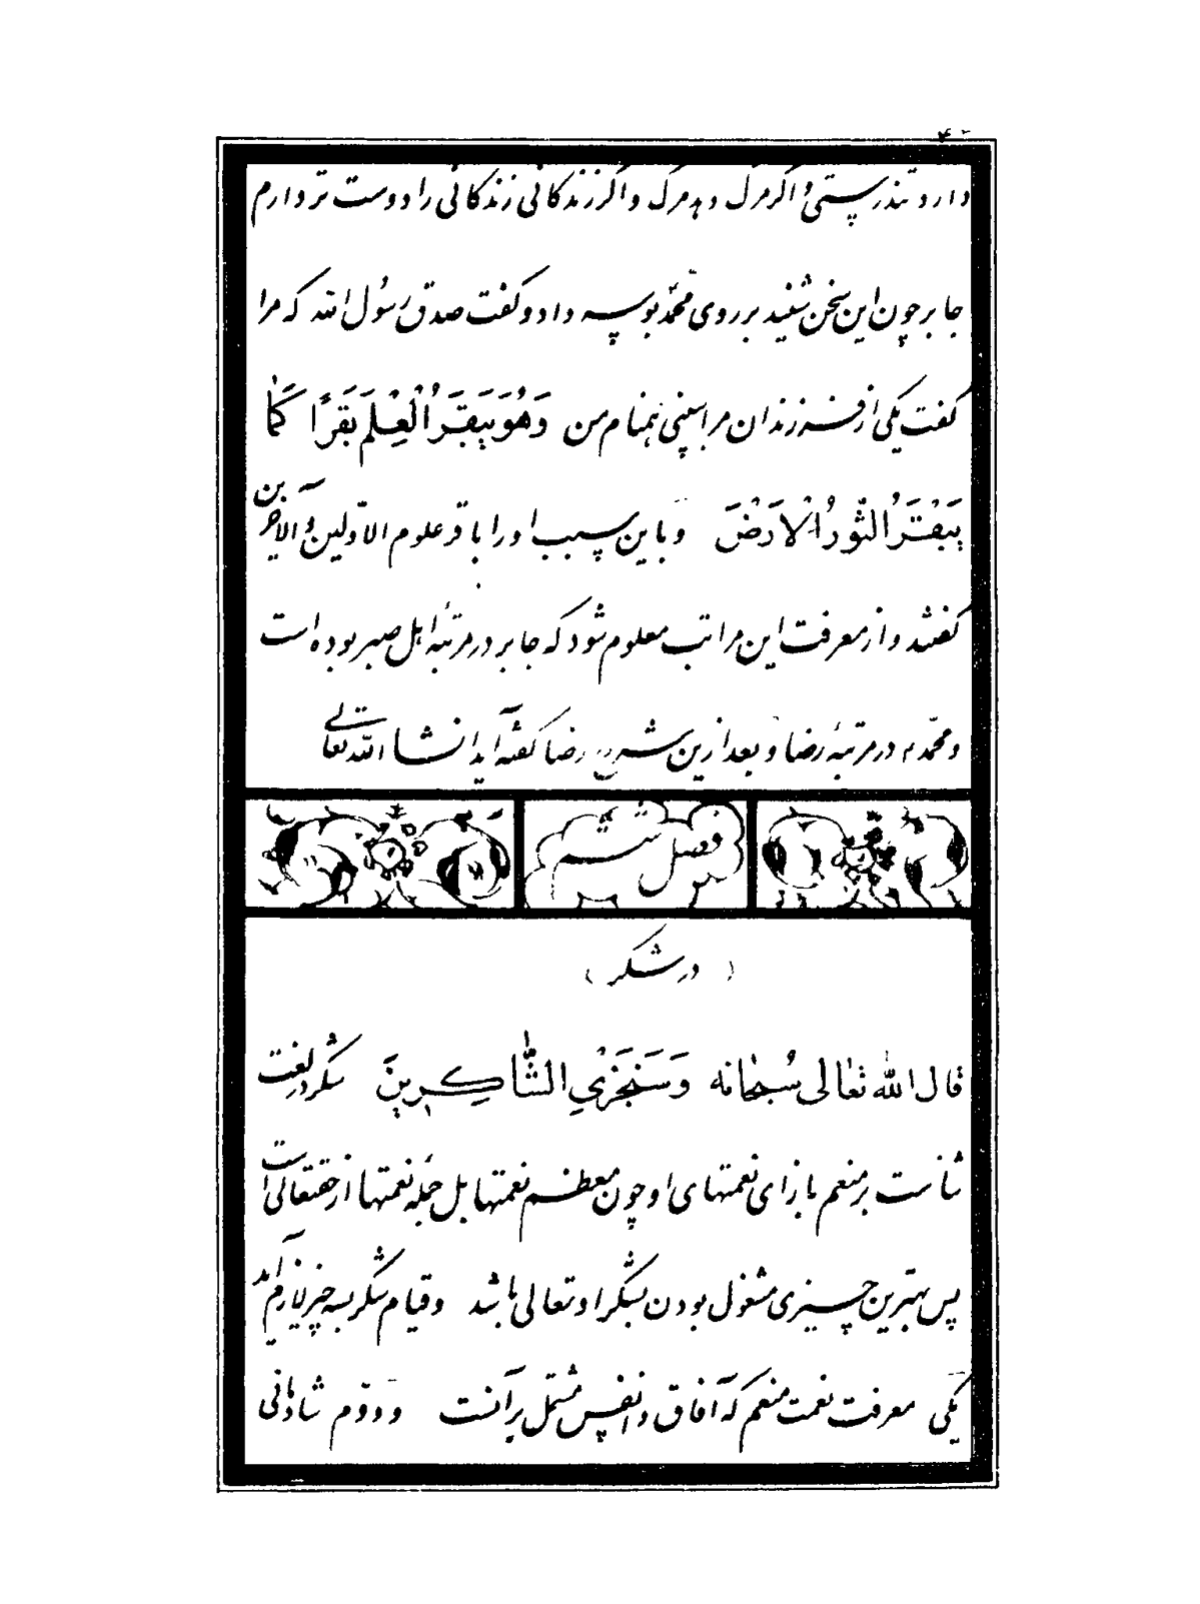 دارد تندرستی و اگر مرگ دهد مرگ و اگر زندگانی زندگانی را دوست تر دارم
جابر چون این سخن شنید بر روی محمد بوسه داد و گفت صدق رسول الله که مرا
گفت یکی از فرزندان مرا ببینی همنام من وَهُوَ يَبقَرُ الْعِلْمَ بَقَرًا كَمٰا
يَبْقَرُ الثَّورُ الْاَرَضَ و باین سبب او را باقر علوم الاوّلین و الآخرین
گفتند و از معرفت این مراتب معلوم شود که جابر در مرتبهٔ اهل صبر بوده است
و محمد در مرتبهٔ رضا و بعد ازین شرح رضا گفته آید انشا الله تعالی
فصل ششم
( در شکر )
قال الله تعٰالی سُبحٰانه وَسَنَجزْيِ الشّٰاكِرِينَ شکر در لغت
ثناست بر منعم بازای نعمتهای او چون معظم نعمتها بل جمله نعمتها از حقتعالی است
پس بهترین چیزی مشغول بودن بشکر او تعالی باشد و قیام شکر بسه چیز لازم آید
یکی معرفت نعمت منعم که آفاق و انفس مشتمل بر آنست و دوّم شادمانی